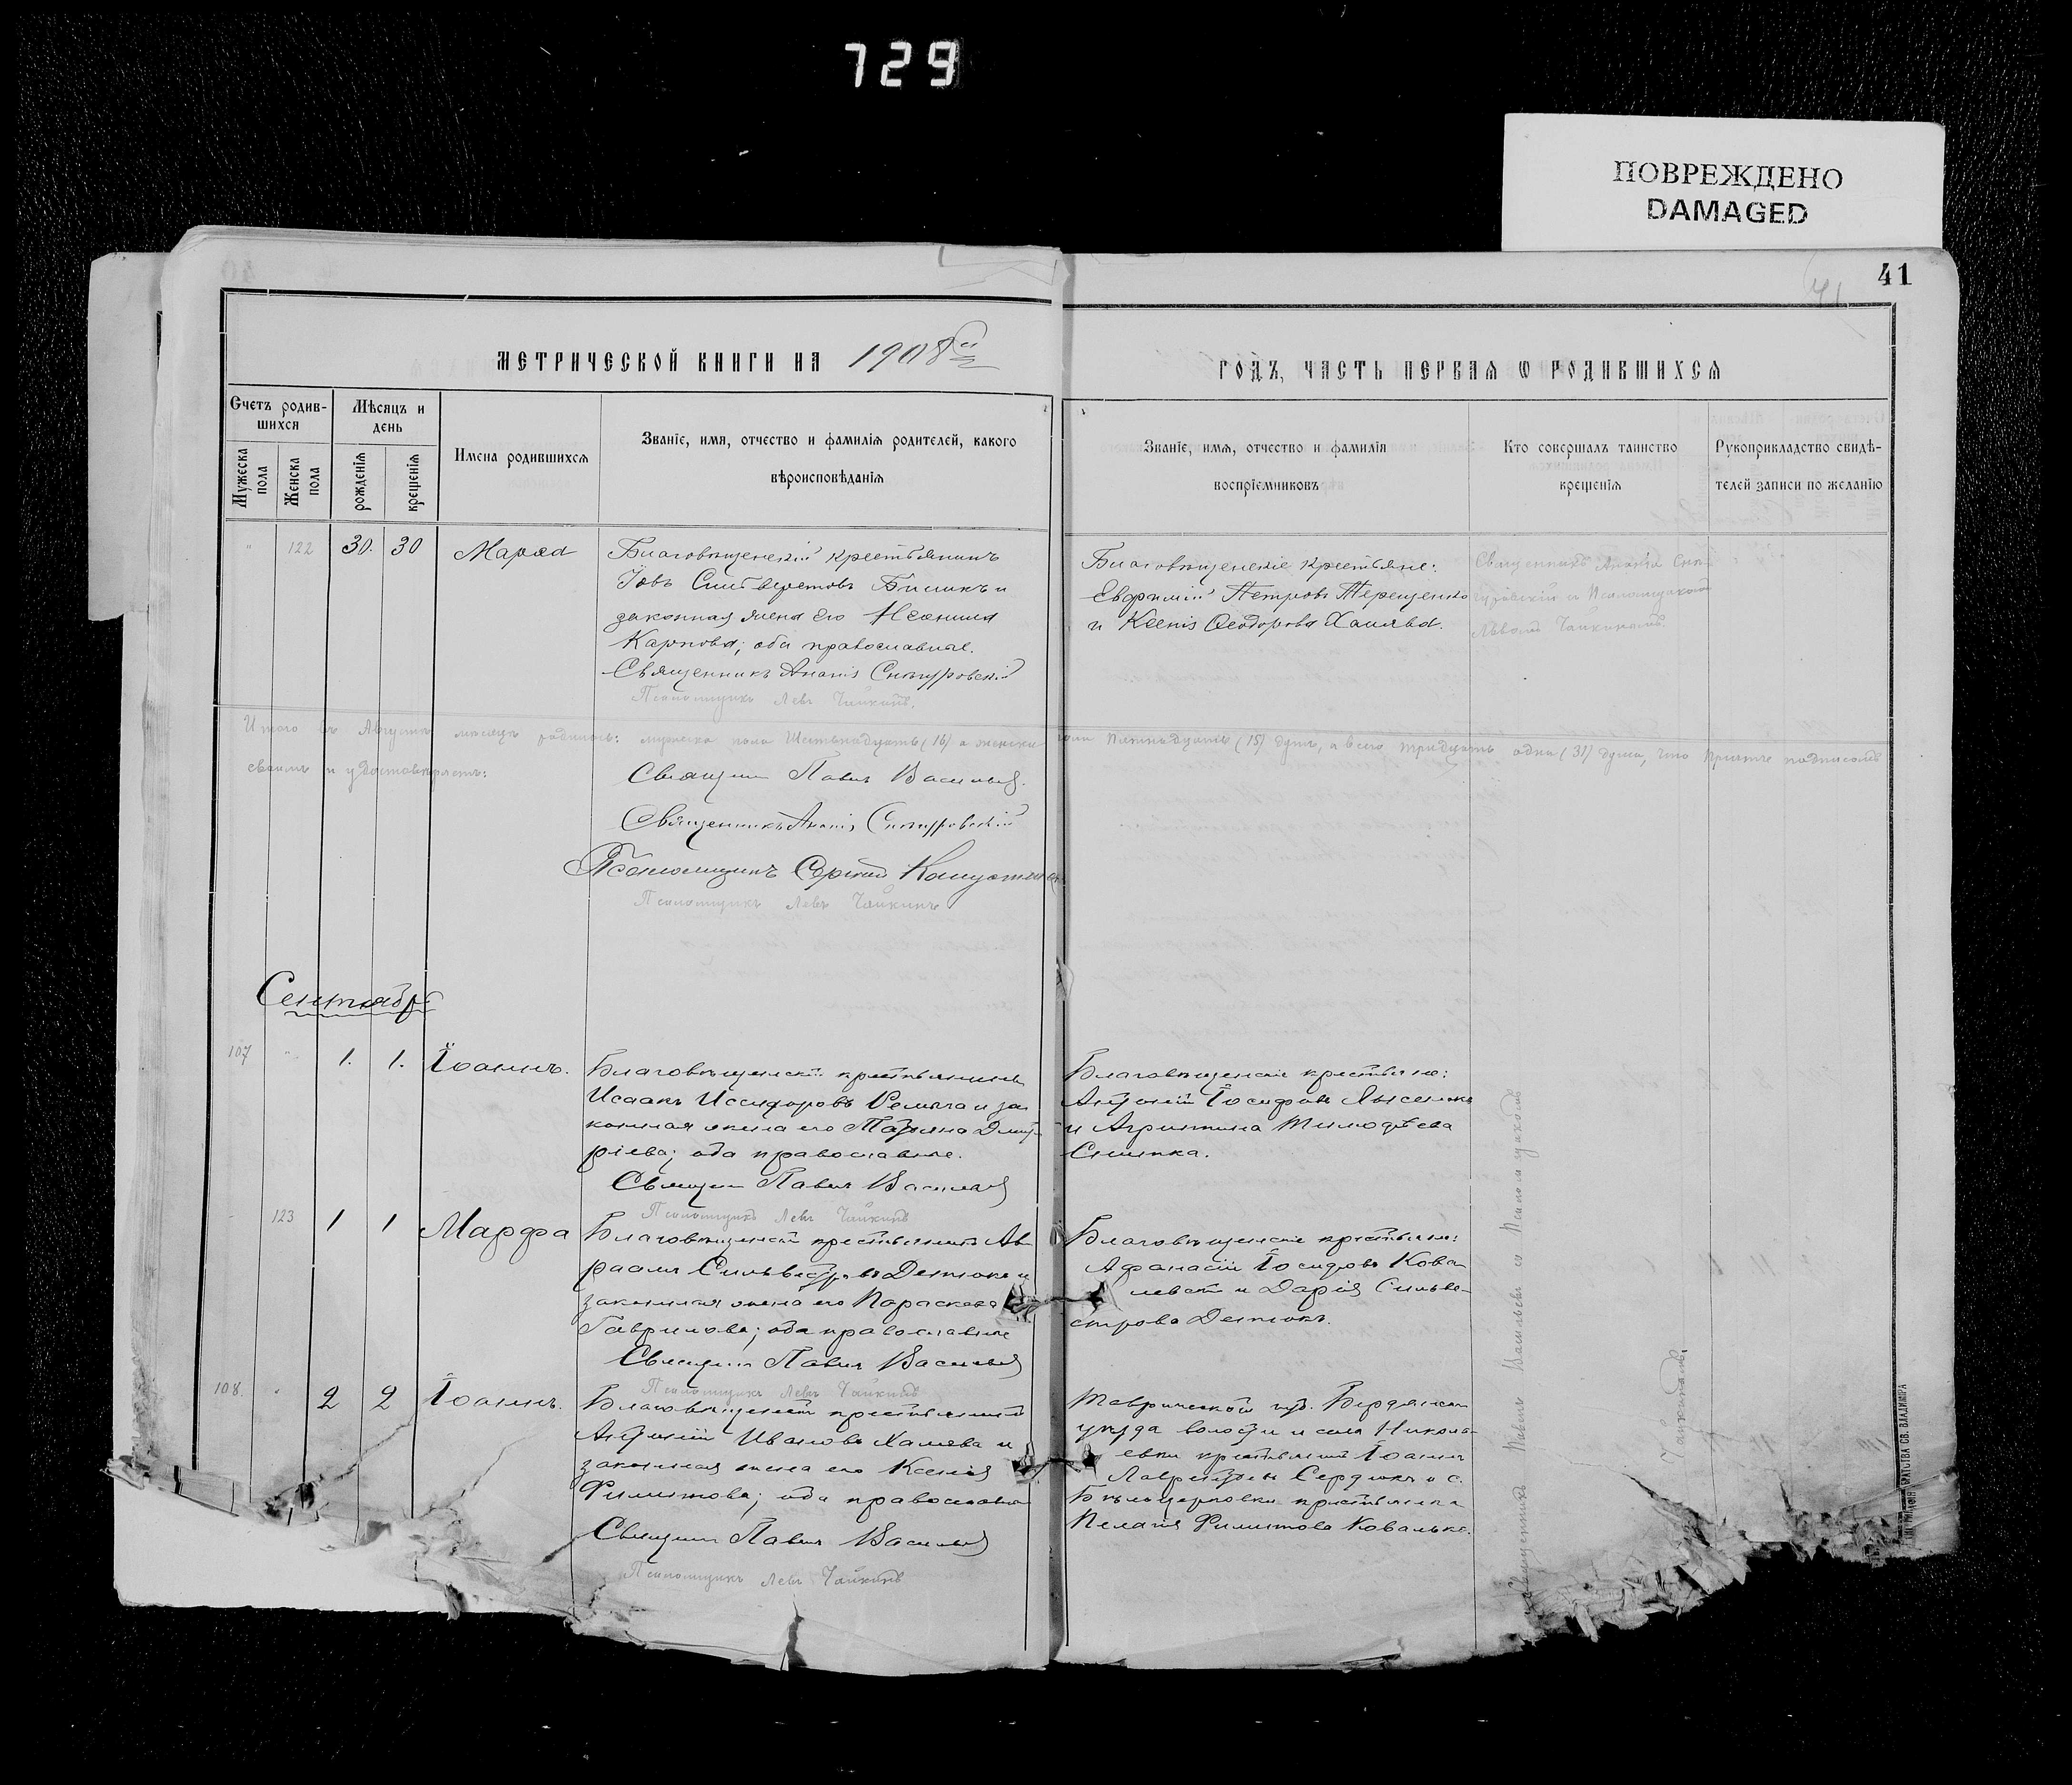 729
ПОВРЕЖДЕНО
DAMAGED
41
41
МЕТРИЧЕСКОЙ КНИГИ НА 1908й
ГОДЪ, ЧАСТЬ ПЕРВАЯ Ѡ РОДИВШИХСЯ
Счетъ родив-
шихся
Мѣсяцъ и
день
Мужеска
пола
Женска
пола
рожденія
крещенія
Имена родившихся
Званіе, имя, отчество и фамилія родителей, какого
вѣроисповѣданія
Званіе, имя, отчество и фамилія
воспріемниковъ
Кто совершалъ таинство
крещенія
Рукоприкладство свидѣ-
телей записи по желанію
" 122 30. 30
Благовѣщенскій крестьянинъ
Іовъ Сильверстовъ и
законная жена его
Карпова; оба православные.
Священникъ Ананія Снѣгуровскій
Псаломщикъ Левъ Чайкинъ.
Благовѣщенскіе крестьяне:
Евфимій Петровъ Терещенко
и Ксенія Ѳеодорова Халява.
Священникъ Ананія Снѣ-
гуровскій и Псаломщикомъ
Львомъ Чайкинымъ.
Итого въ Августѣ мѣсяцѣ родилось: мужеска пола Шестьнадцать (16) а женска пола Пятнадцать (15) душъ, а всего тридцать одна (31) душа, что Причтъ подписомъ
своимъ и удостовѣряетъ:
Священн Павелъ Васильевъ.
Священникъ Ананія Снѣгуровскій
Псаломщикъ Сергій
Псаломщикъ Левъ Чайкинъ
Сентябрь
107 " 1. 1. Іоаннъ.
Благовѣщенскій крестьянинъ
Исаакъ Исидоровъ и за
конная жена его Татіана Дмит-
ріева; оба православные.
Священн Павелъ Васильевъ
Псаломщикъ Левъ Чайкинъ
Благовѣщенскіе крестьяне:
Антоній Іосифовъ Лысенко
и Агрипина Тимофѣева
123 1 1 Марфа
Благовѣщенскій крестьянинъ Ав-
раамъ Сильвестровъ и
законная жена его Параскева
Гаврилова; оба православные
Священн Павелъ Васильевъ
Псаломщикъ Левъ Чайкинъ
Благовѣщенскіе крестьяне:
Афанасій Іосифовъ Кова-
левскій и Дарія Сильве-
строва
108. " 2 2 Іоаннъ.
Благовѣщенскій крестьянинъ
Антоній Ивановъ Халява и
законная жена его Ксенія
Филиппова; оба православные
Священн Павелъ Васильевъ
Псаломщикъ Левъ Чайкинъ
Таврической губ. Бердянскаго
уѣзда волости и села Никола-
евки крестьянинъ Іоаннъ
Лаврентьевъ Сердюкъ и с.
Бѣлоцерковки крестьянка
Пелагія Филиппова
Священникъ Павелъ Васильевъ съ Псаломщикомъ
Чайкинымъ.
БРАТСТВА СВ. ВЛАДИМІРА